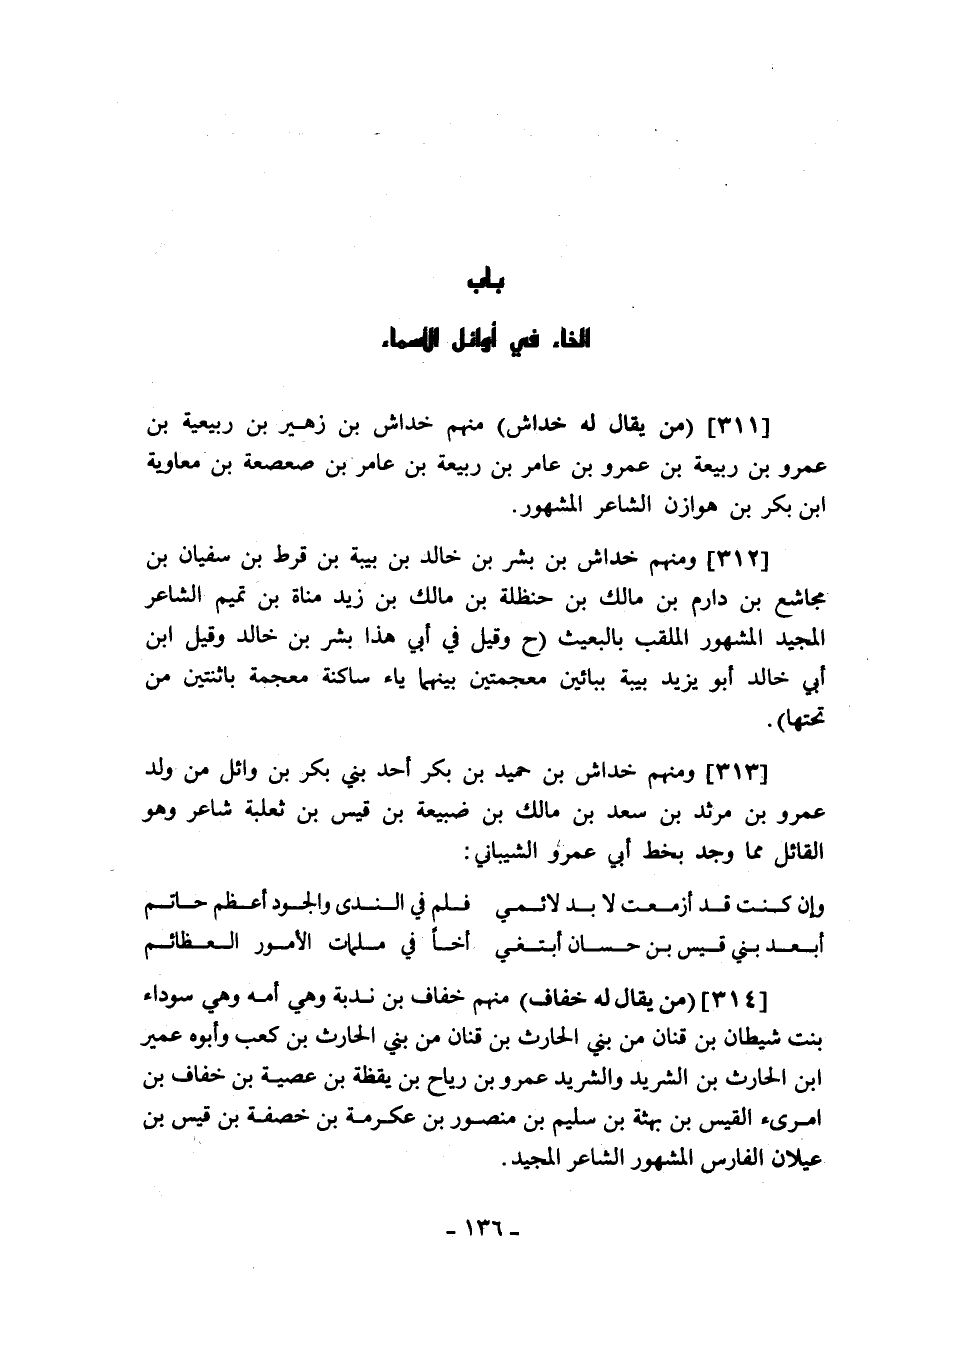 باب
الخاء في أوائل الأسماء
[٣١١] (من يقال له خداش) منهم خداش بن زهير بن ربيعية بن
عمرو بن ربيعة بن عمرو بن عامر بن ربيعة بن عامر بن صعصعة بن معاوية
ابن بكر بن هوازن الشاعر المشهور.
[٣١٢] ومنهم خداش بن بشر بن خالد بن بيبة بن قرط بن سفيان بن
مجاشع بن دارم بن مالك بن حنظلة بن مالك بن زيد مناة بن تميم الشاعر
المجيد المشهور الملقب بالبعيث (ح وقيل في أبي هذا بشر بن خالد وقيل ابن
أبي خالد أبو يزيد بيبة ببائين معجمتين بينهما ياء ساكنة معجمة باثنتين من
تحتها).
[٣١٣] ومنهم خداش بن حميد بن بكر أحد بني بكر بن وائل من ولد
عمرو بن مرثد بن سعد بن مالك بن ضبيعة بن قيس بن ثعلبة شاعر وهو
القائل مما وجد بخط أبي عمرو الشيباني:
وإن كنت قد أزمعت لا بد لائمي فلم في الندى والجود أعظم حاتم
أبعد بني قيس بن حسان أبتغي أخاً في ملمات الأمور العظائم
[٣١٤] (من يقال له خفاف) منهم خفاف بن ندبة وهي أمه وهي سوداء
بنت شيطان بن قنان من بني الحارث بن قنان من بني الحارث بن كعب وأبوه عمير
ابن الحارث بن الشريد والشريد عمرو بن رياح بن يقظة بن عصية بن خفاف بن
امرىء القيس بن بهثة بن سليم بن منصور بن عكرمة بن خصفة بن قيس بن
عيلان الفارس المشهور الشاعر المجيد.
- ١٣٦ -